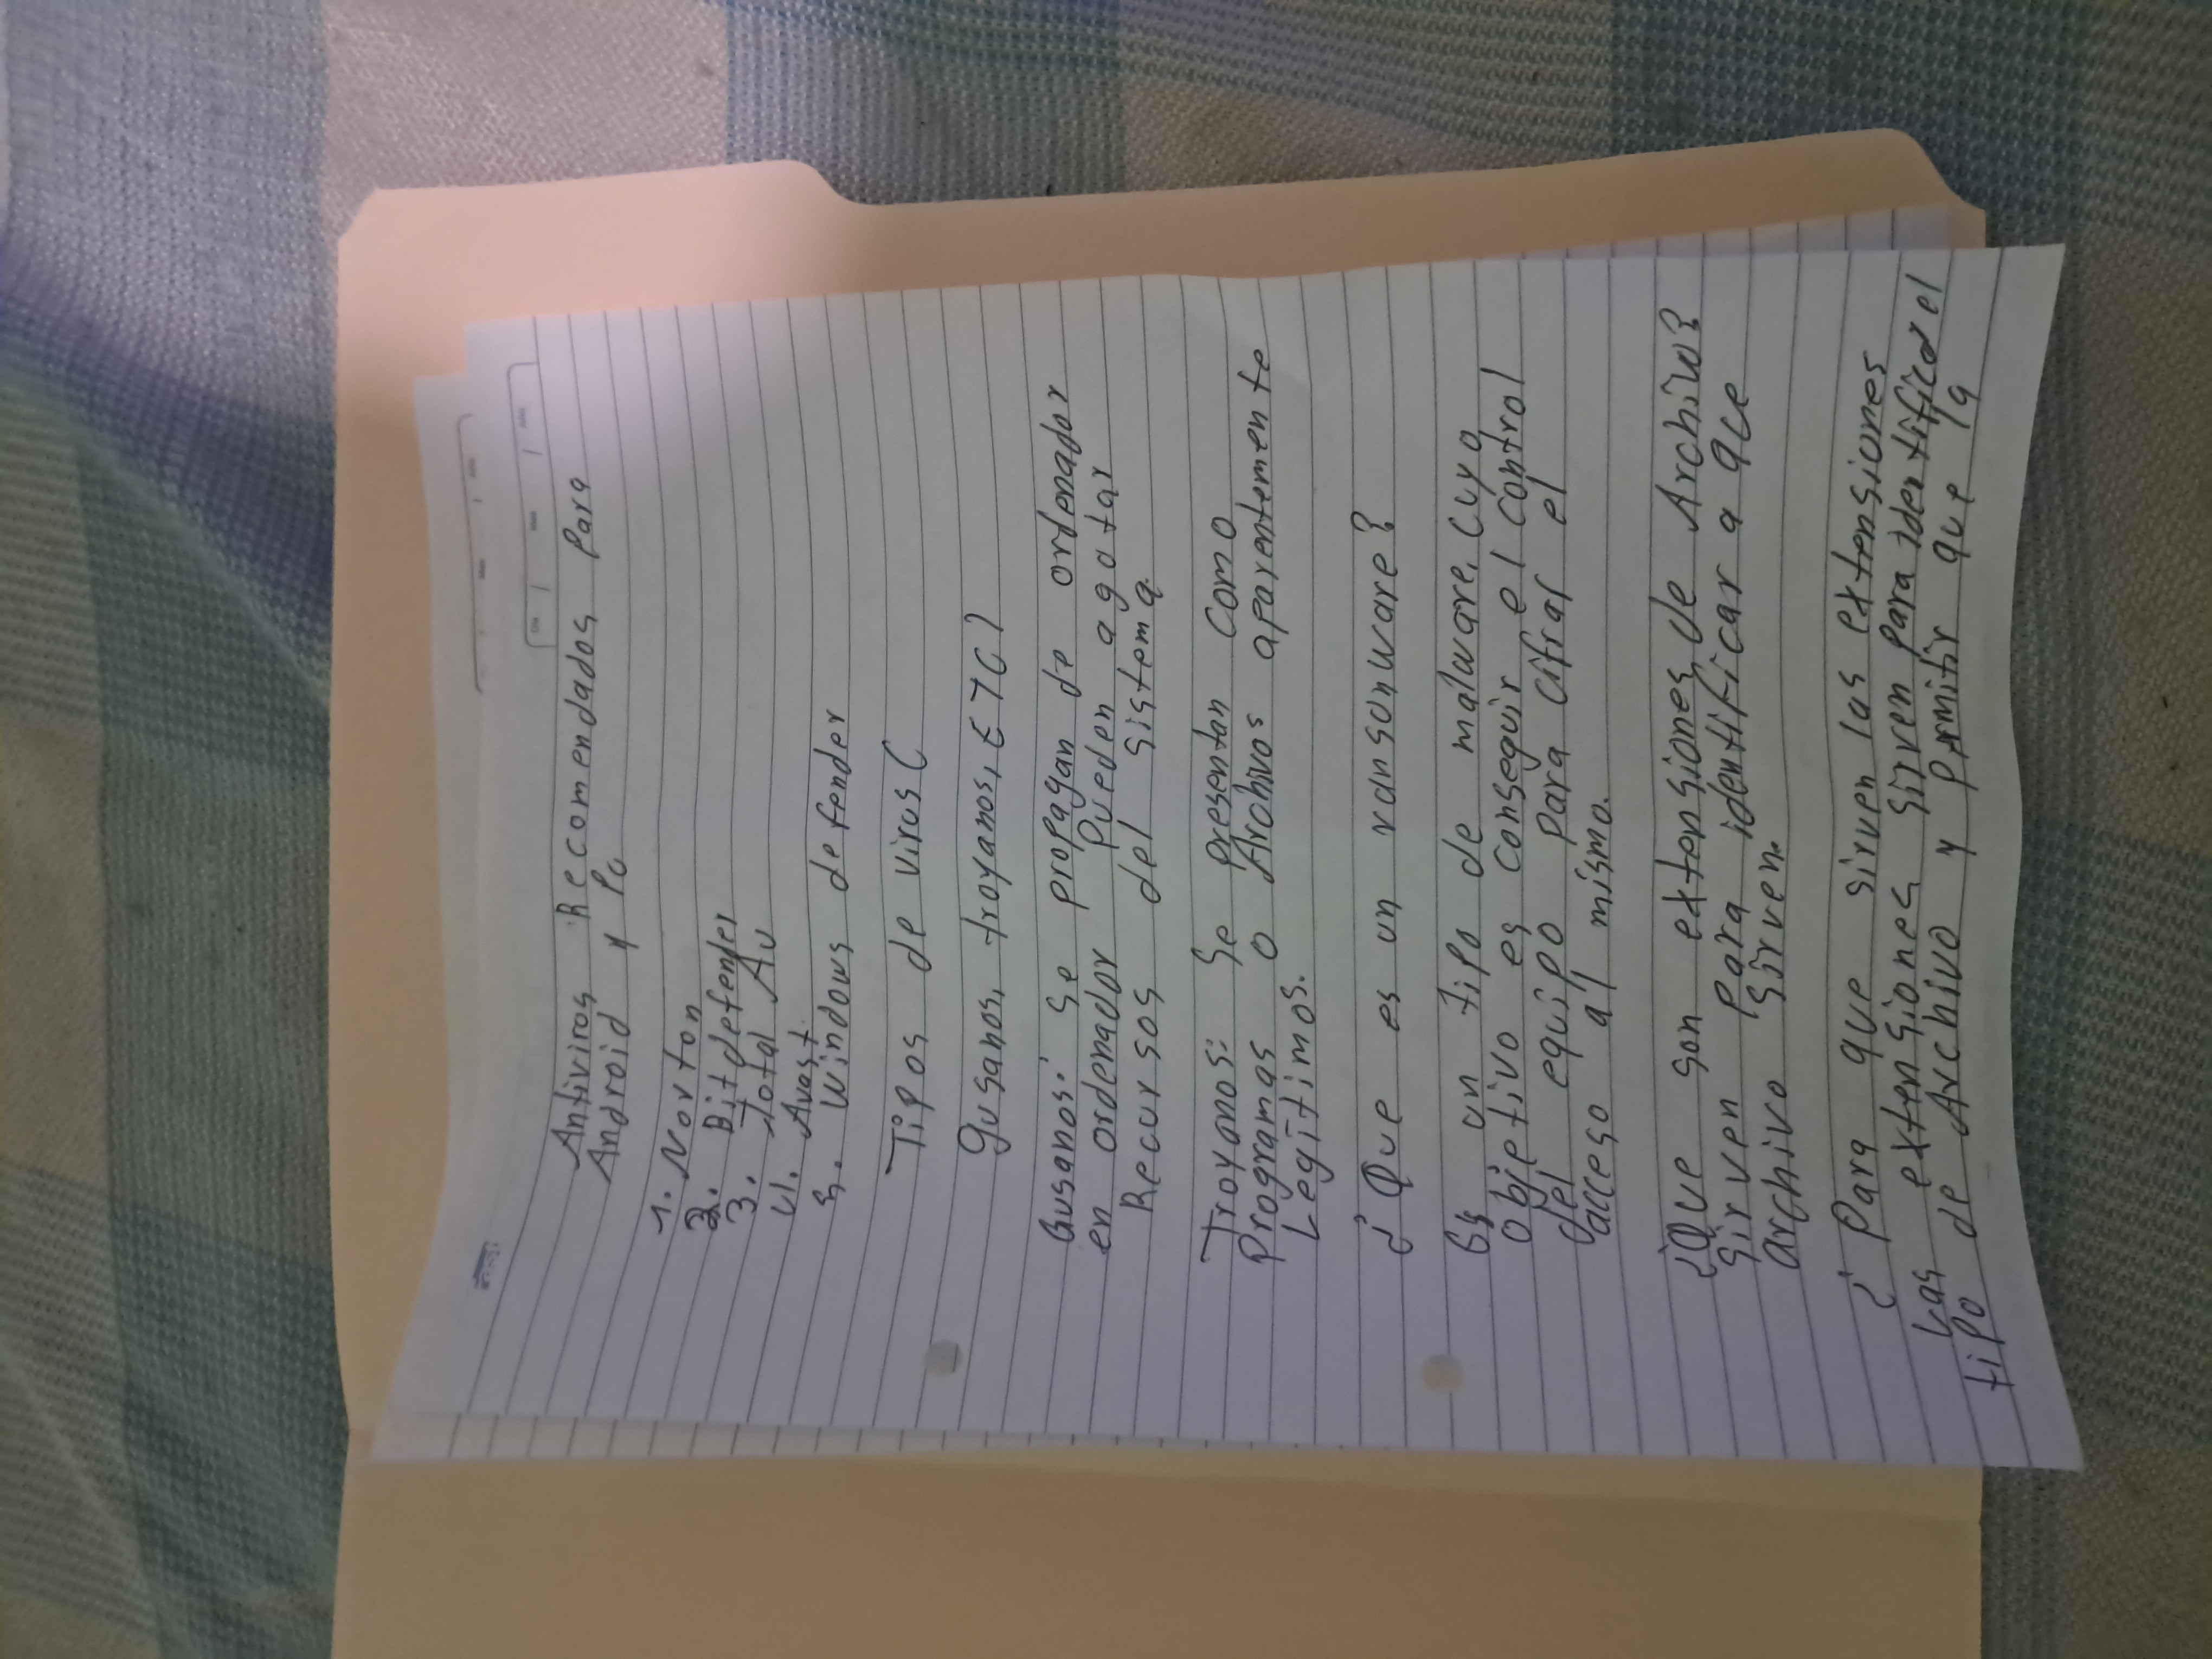 Antiviros Recomendados para
Android y Pc
1. Norton
2. Bitdefender
3. Total Av
4. Avast
5. Windows defender
Tipos de virus (
Gusanos, troyanos, ETC)
Gusanos: se propagan de ordenador
en ordenador Pueden agotar
Recursos del sistema.
Troyanos: Se presentan como
Programas o Archivos aparentemente
Legítimos.
¿Que es un ransonware?
Es un tipo de malware, cuyo
objetivo es conseguir el control
del equipo para cifrar el
acceso al mismo.
¿Que son extensiones de Archivo?
Sirven para identificar a que
archivo sirven.
¿Para que sirven las extensiones
Las extensiones sirven para identificar el
tipo de Archivo y prmitir que la